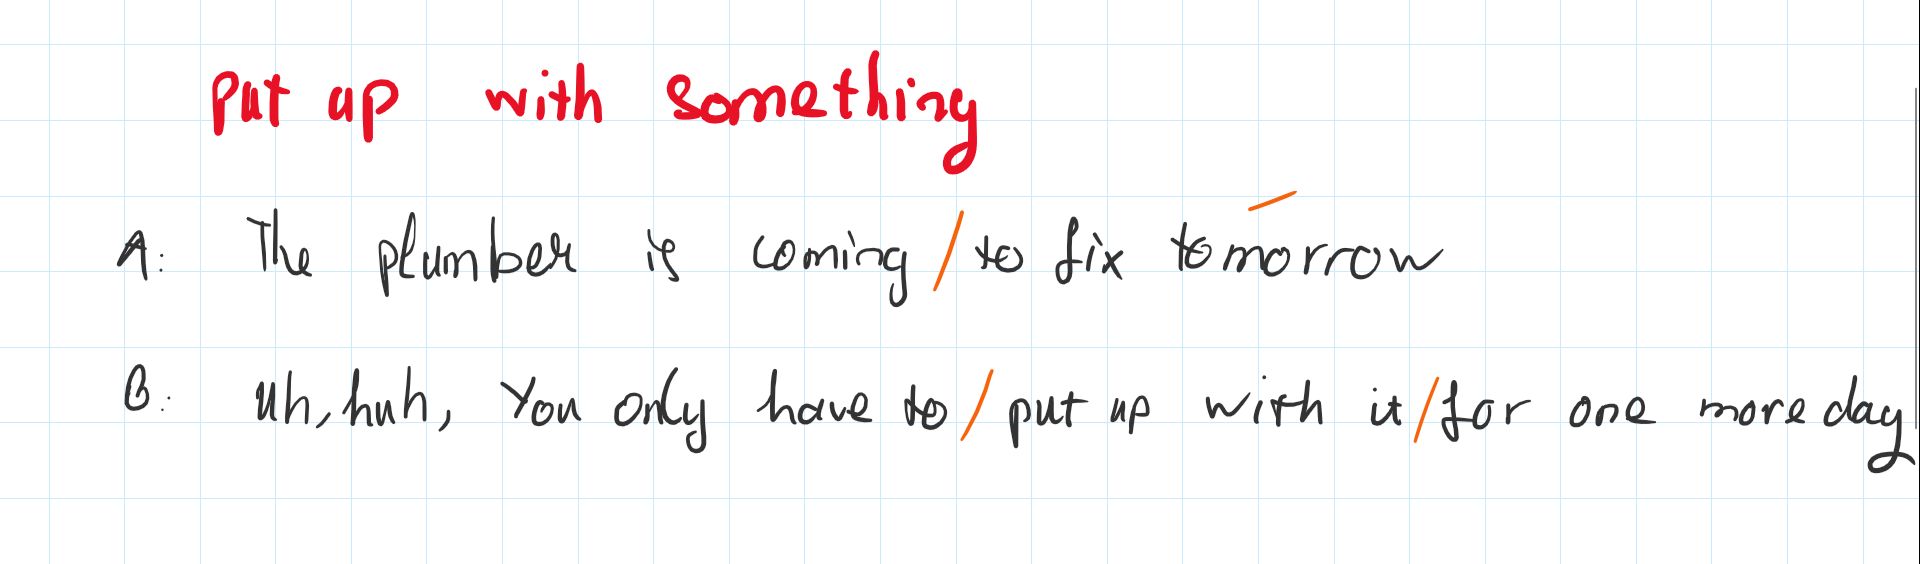 put up with something
A: The plumber is coming / to fix tomorrow
B: Uh, huh, You only have to / put up with it / for one more day